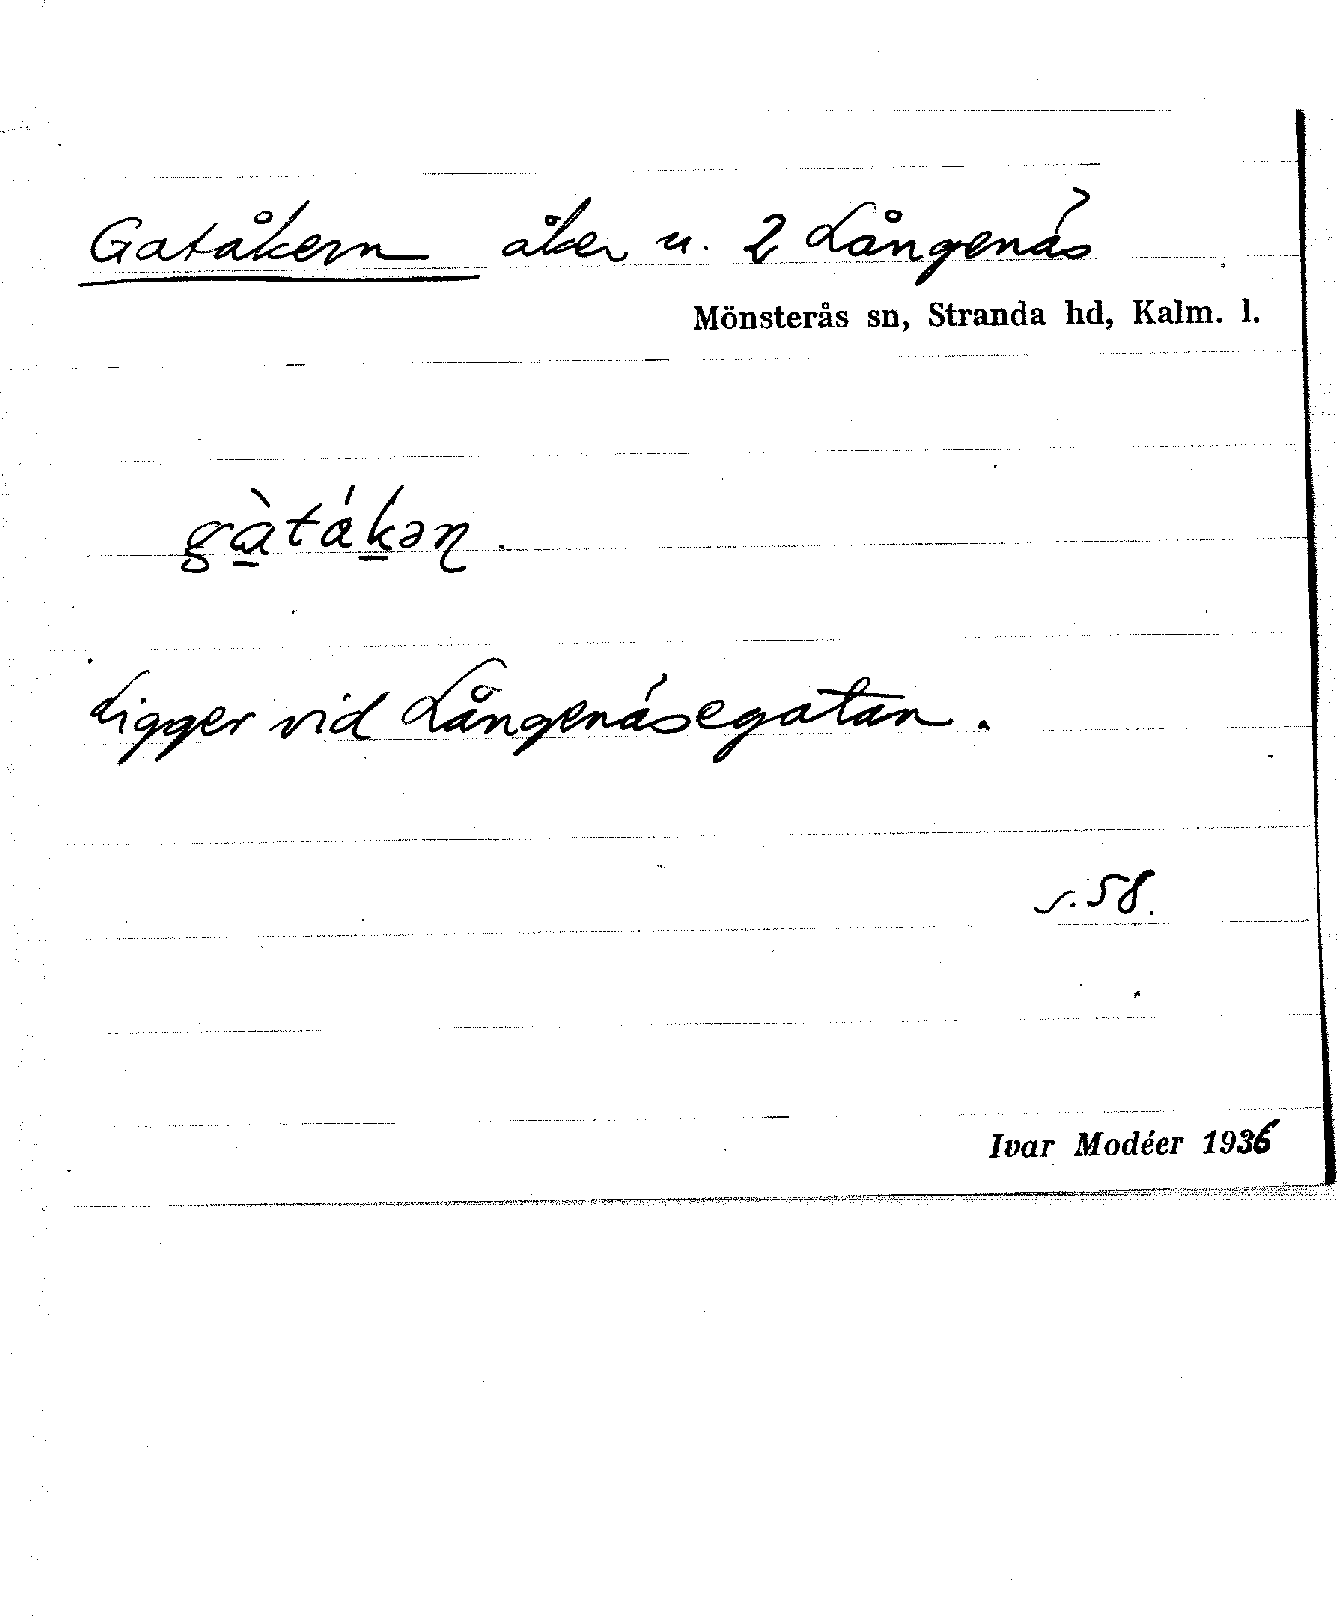 Gatåkern åker u. 2 Långenäs
Mönsterås sn, Stranda hd, Kalm. l.
gàtákəɳ.
Ligger vid Långenäsegatan.
s. 58.
Ivar Modéer 1936